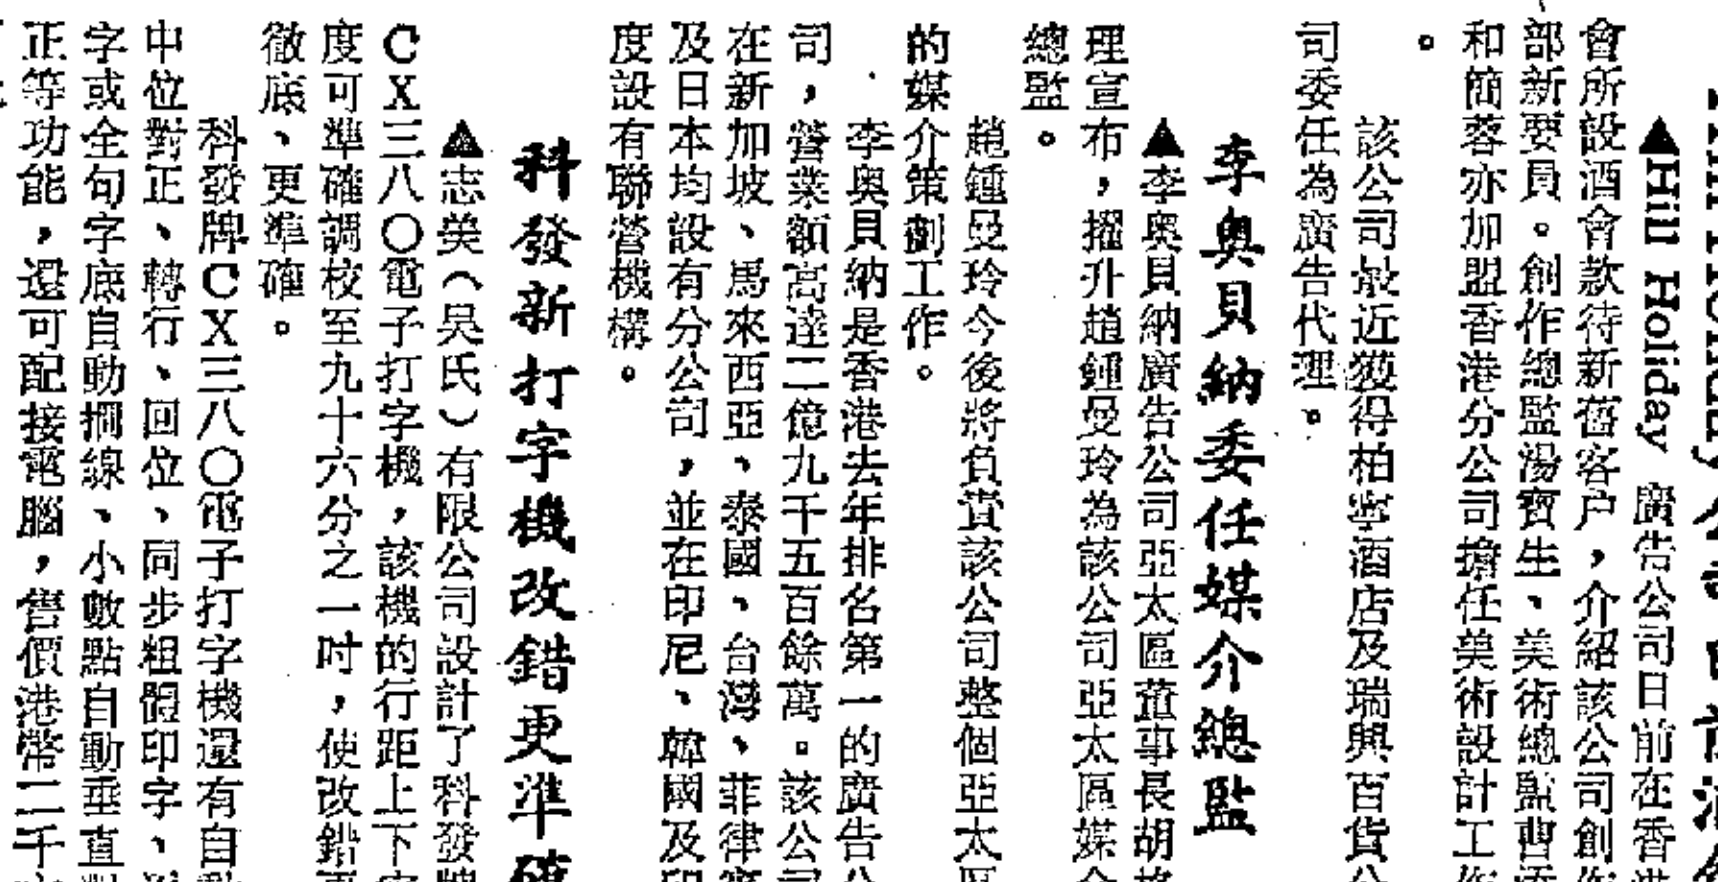 ▲Hill Holiday 廣告公司日前在香港
會所設酒會款待新舊客户，介紹該公司創作
部新要員。創作總監湯寶生、美術總監曹
和簡蓉亦加盟香港分公司擔任美術設計工作
。
該公司最近獲得柏寧酒店及瑞興百貨公
司委任為廣告代理。
李奧貝納委任媒介總監
▲李奧貝納廣告公司亞太區董事長胡
理宣布，擢升趙鍾曼玲為該公司亞太區媒介
總監。
趙鍾曼玲今後將負責該公司整個亞太區
的媒介策劃工作。
李奧貝納是香港去年排名第一的廣告公
司，營業額高達二億九千五百餘萬。該公司
在新加坡、馬來西亞、泰國、台灣、菲律賓
及日本均設有分公司，並在印尼、韓國及印
度設有聯營機構。
科發新打字機改錯更準確
▲志美（吳氏）有限公司設計了科發牌
CX三八〇電子打字機，該機的行距上下
度可準確調校至九十六分之一吋，使改錯更
徹底、更準確。
科發牌CX三八〇電子打字機還有自動
中位對正、轉行、回位、同步粗體印字、
字或全句字底自動擱線、小數點自動垂直對
正等功能，還可配接電腦，售價港幣二千